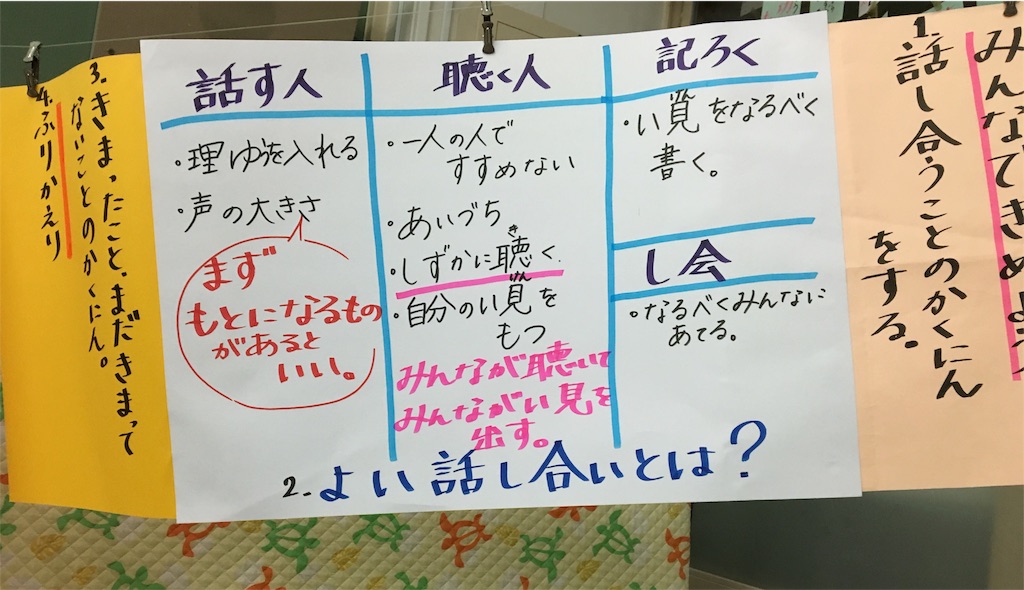 みんなできめよう
1.話し合うことのかくにん
をする。
話す人
・理ゆうを入れる
・声の大きさ
まず
もとになるもの
があると
いい。
聴く人
・一人の人で
すすめない
・あいづち
き
・しずかに聴く
けん
・自分のい見を
もつ
みんなが聴いて
みんながい見を
出す。
記ろく
けん
・い見をなるべく
書く。
し会
・なるべくみんなに
あてる。
2.よい話し合いとは?
3.きまったこと、まだきまって
ないことのかくにん。
4.ふりかえり